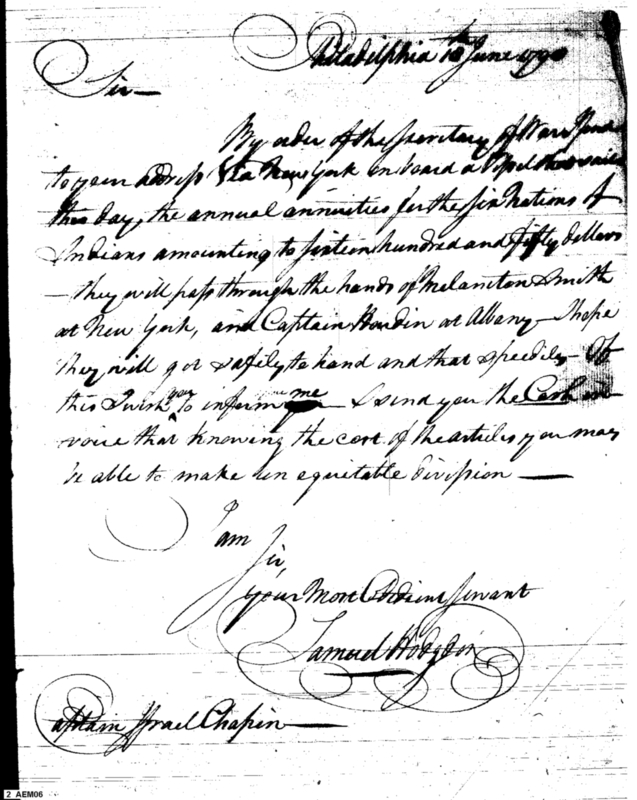 Philadelphia 18th June 179
Sir —
By order of the Secretary of War I send
to your address Via New York on board a Vessel that sails
this day, the annual annuities for the Six Nations of
Indians amounting to sixteen hundred and fifty dollars
— they will pass through the hands of Melancton Smith
at New York, and Captain Houdin at Albany — I hope
they will get safely to hand and that speedily — Of
this I wish you to inform me — I send you the Cash in-
voice that knowing the cost of the articles you may
be able to make an equitable division —
I am
Sir,
your Most Obedient Servant
Samuel Hodgdon
Captain Israel Chapin —
2_AEM06